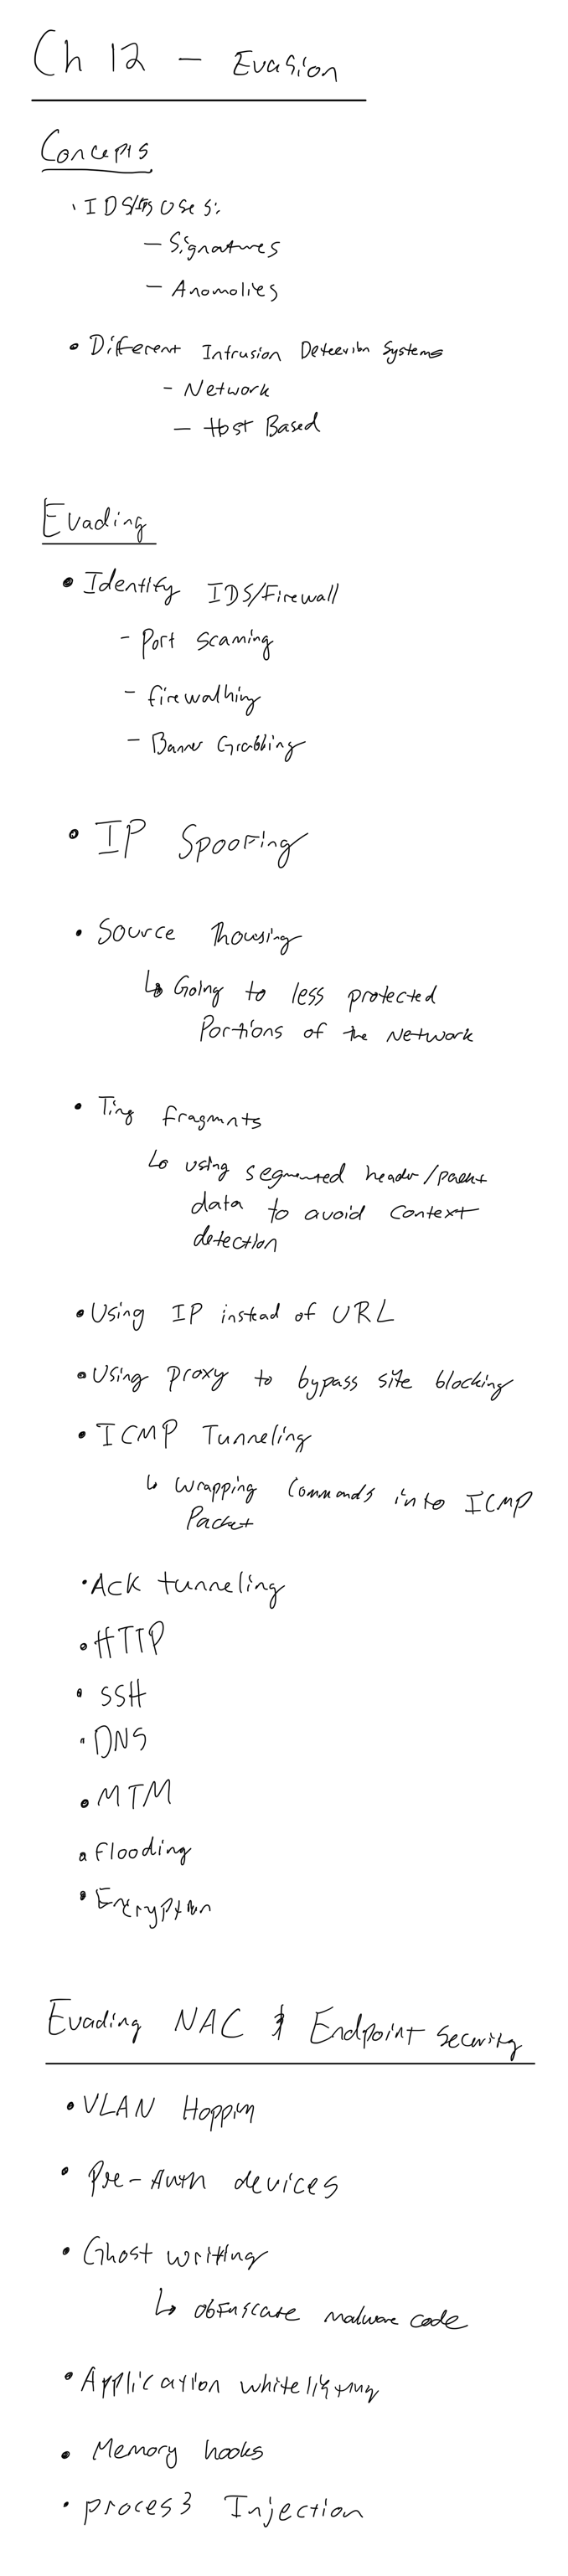 Ch 12 - Evasion
Concepts
• IDS/IPS Uses:
- Signatures
- Anomolies
• Different Intrusion Detection Systems
- Network
- Host Based
Evading
• Identify IDS/Firewall
- Port Scanning
- firewalking
- Banner Grabbing
• IP Spoofing
• Source Routing
↳ Going to less protected
Portions of the Network
• Tiny fragments
↳ using segmented header/packet
data to avoid context
detection
• Using IP instead of URL
• Using proxy to bypass site blocking
• ICMP Tunneling
↳ Wrapping Commands into ICMP
Packet
• Ack tunneling
• HTTP
• SSH
• DNS
• MTM
• flooding
• Encryption
Evading NAC & Endpoint Security
• VLAN Hopping
• Pre-Auth devices
• Ghost writing
↳ obfuscate malware code
• Application whitelisting
• Memory hooks
• process Injection